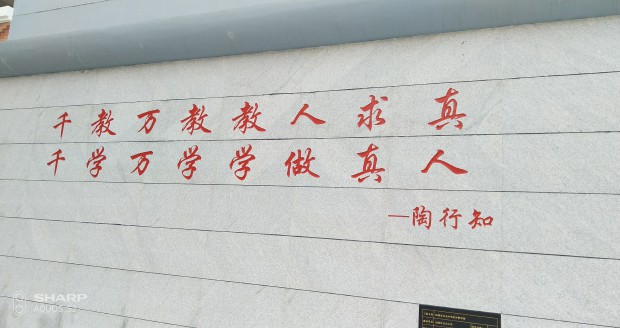 千教万教教人求真
千学万学学做真人
—陶行知
SHARP
AQUOS S2